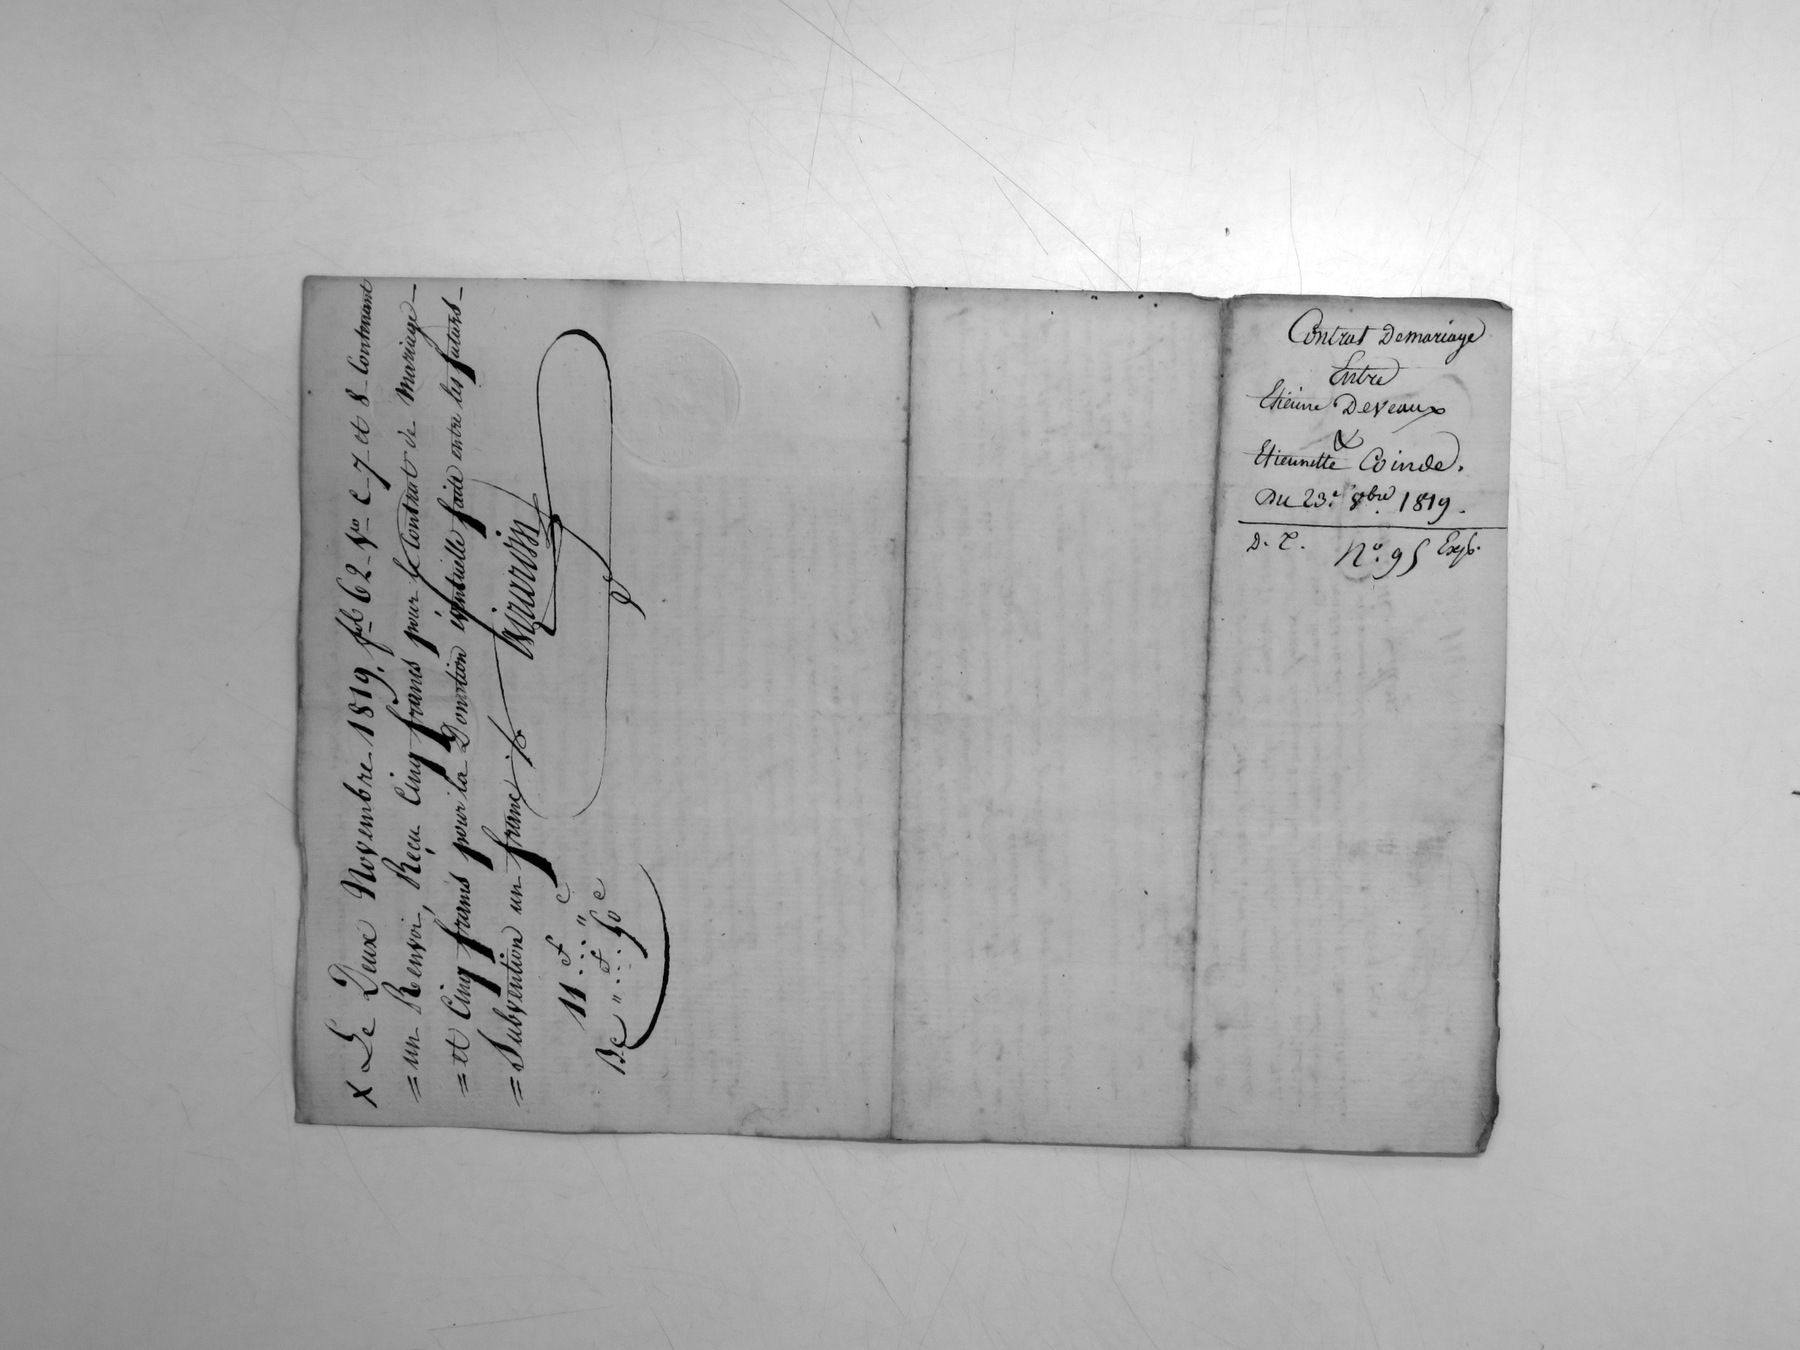 Contrat Demariage
Entre
Etienne Deveaux
&
Etiennette Coinde.
Du 23.e 8bre 1819.
D. T. No. 95 Exp.
x Le Deux Novembre 1819. fol 62 Vo C 7 et 8 Contenant
= un Renvoi, Reçu Cinq francs pour le Contrat de Mariage
= et Cinq francs pour la Donation eventuelle faite entre les futurs
= Subvention un franc
11 f .. " c
De " f .. 50 c